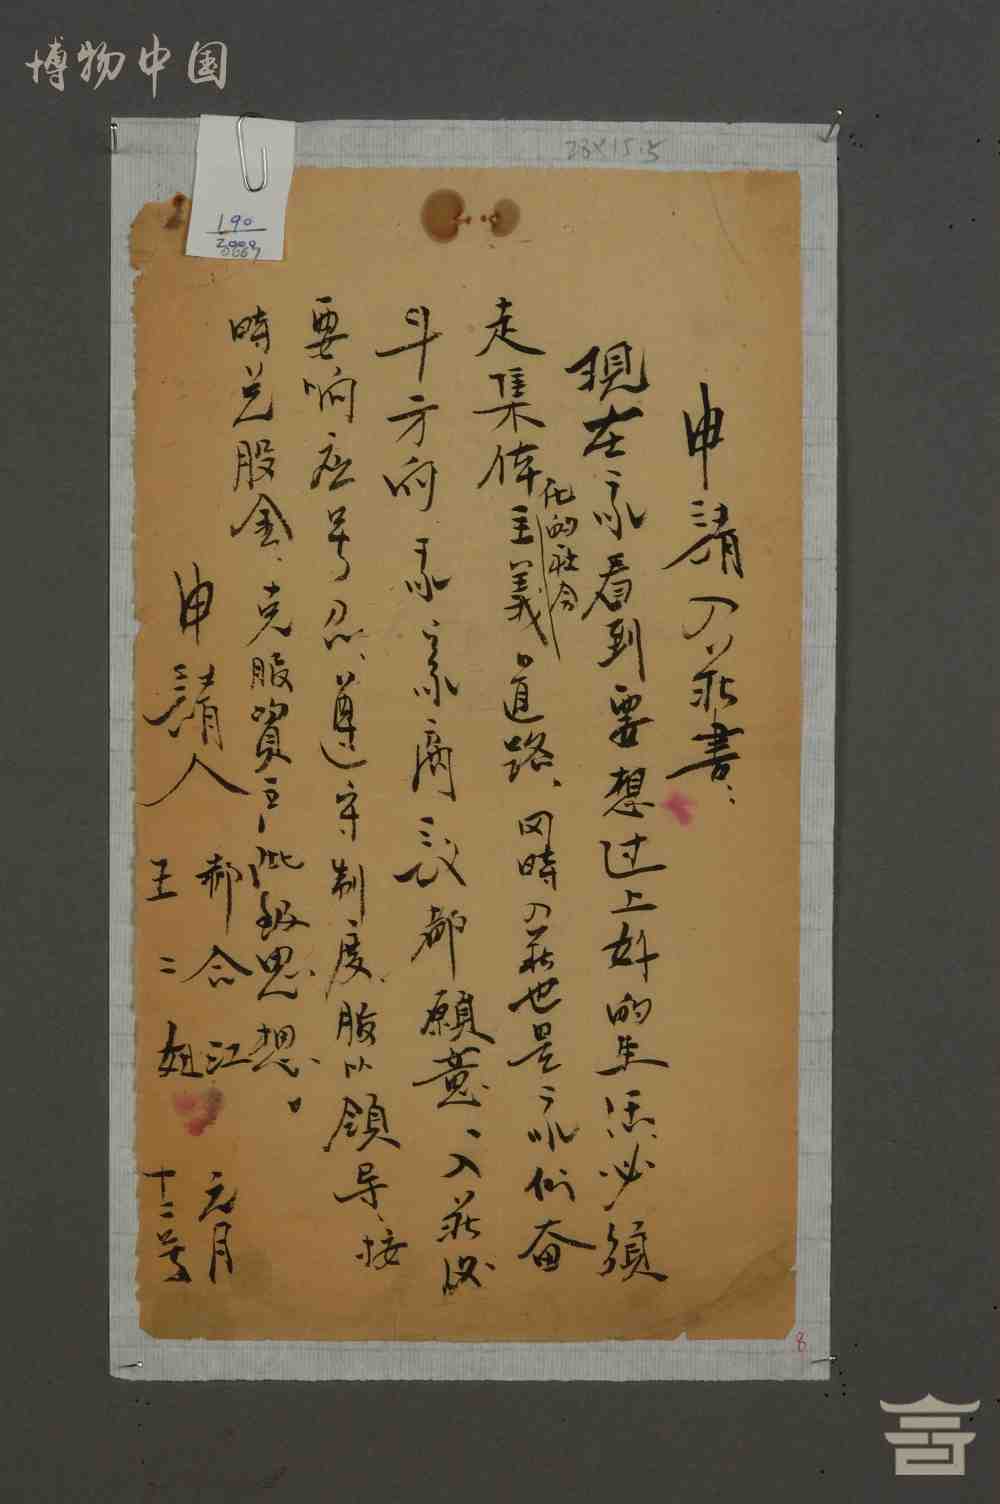 博物中国
28×15.5
190
申請入社書：
現在我看到要想过上好的生活必須
走集体化的社会主義道路、同時入社也是我們奋
斗方向 我家商议都願意、入社後
要响应号召、遵守制度、服从領导、按
時兑股金、克服資产階級思想。
申請人 郝合江
王二姐
元月
十二号
8